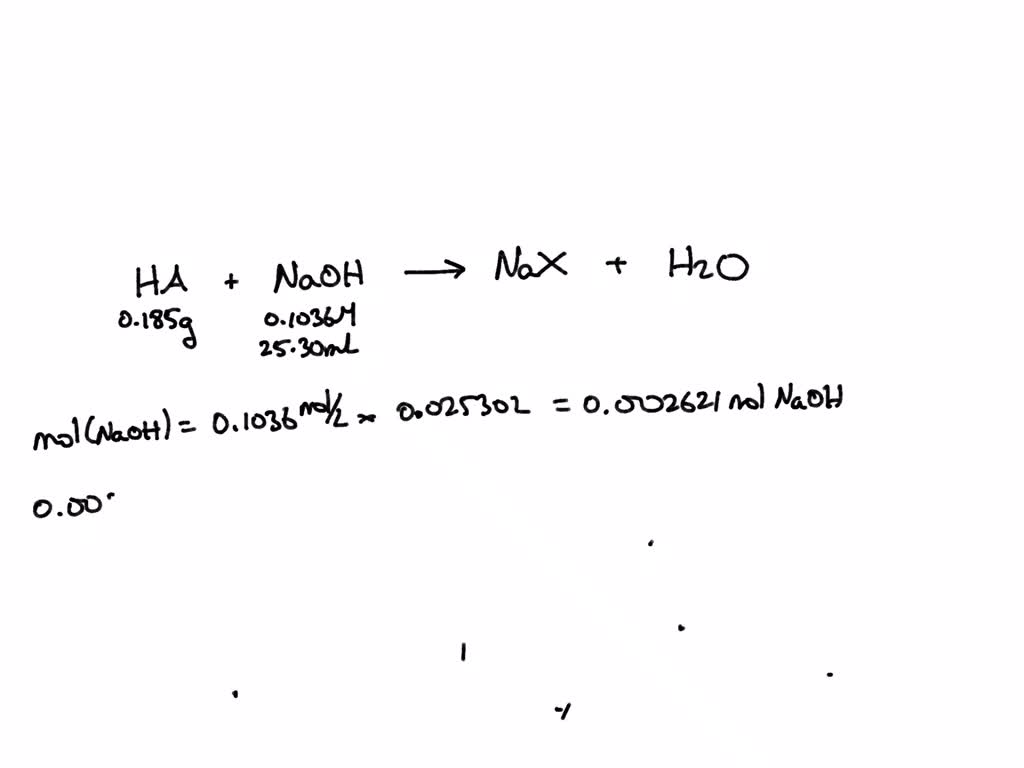 HA + NaOH → NaX + H2O
0.185g 0.1036M
25.30mL
mol(NaOH) = 0.1036 mol/L × 0.02530L = 0.002621 mol NaOH
0.00